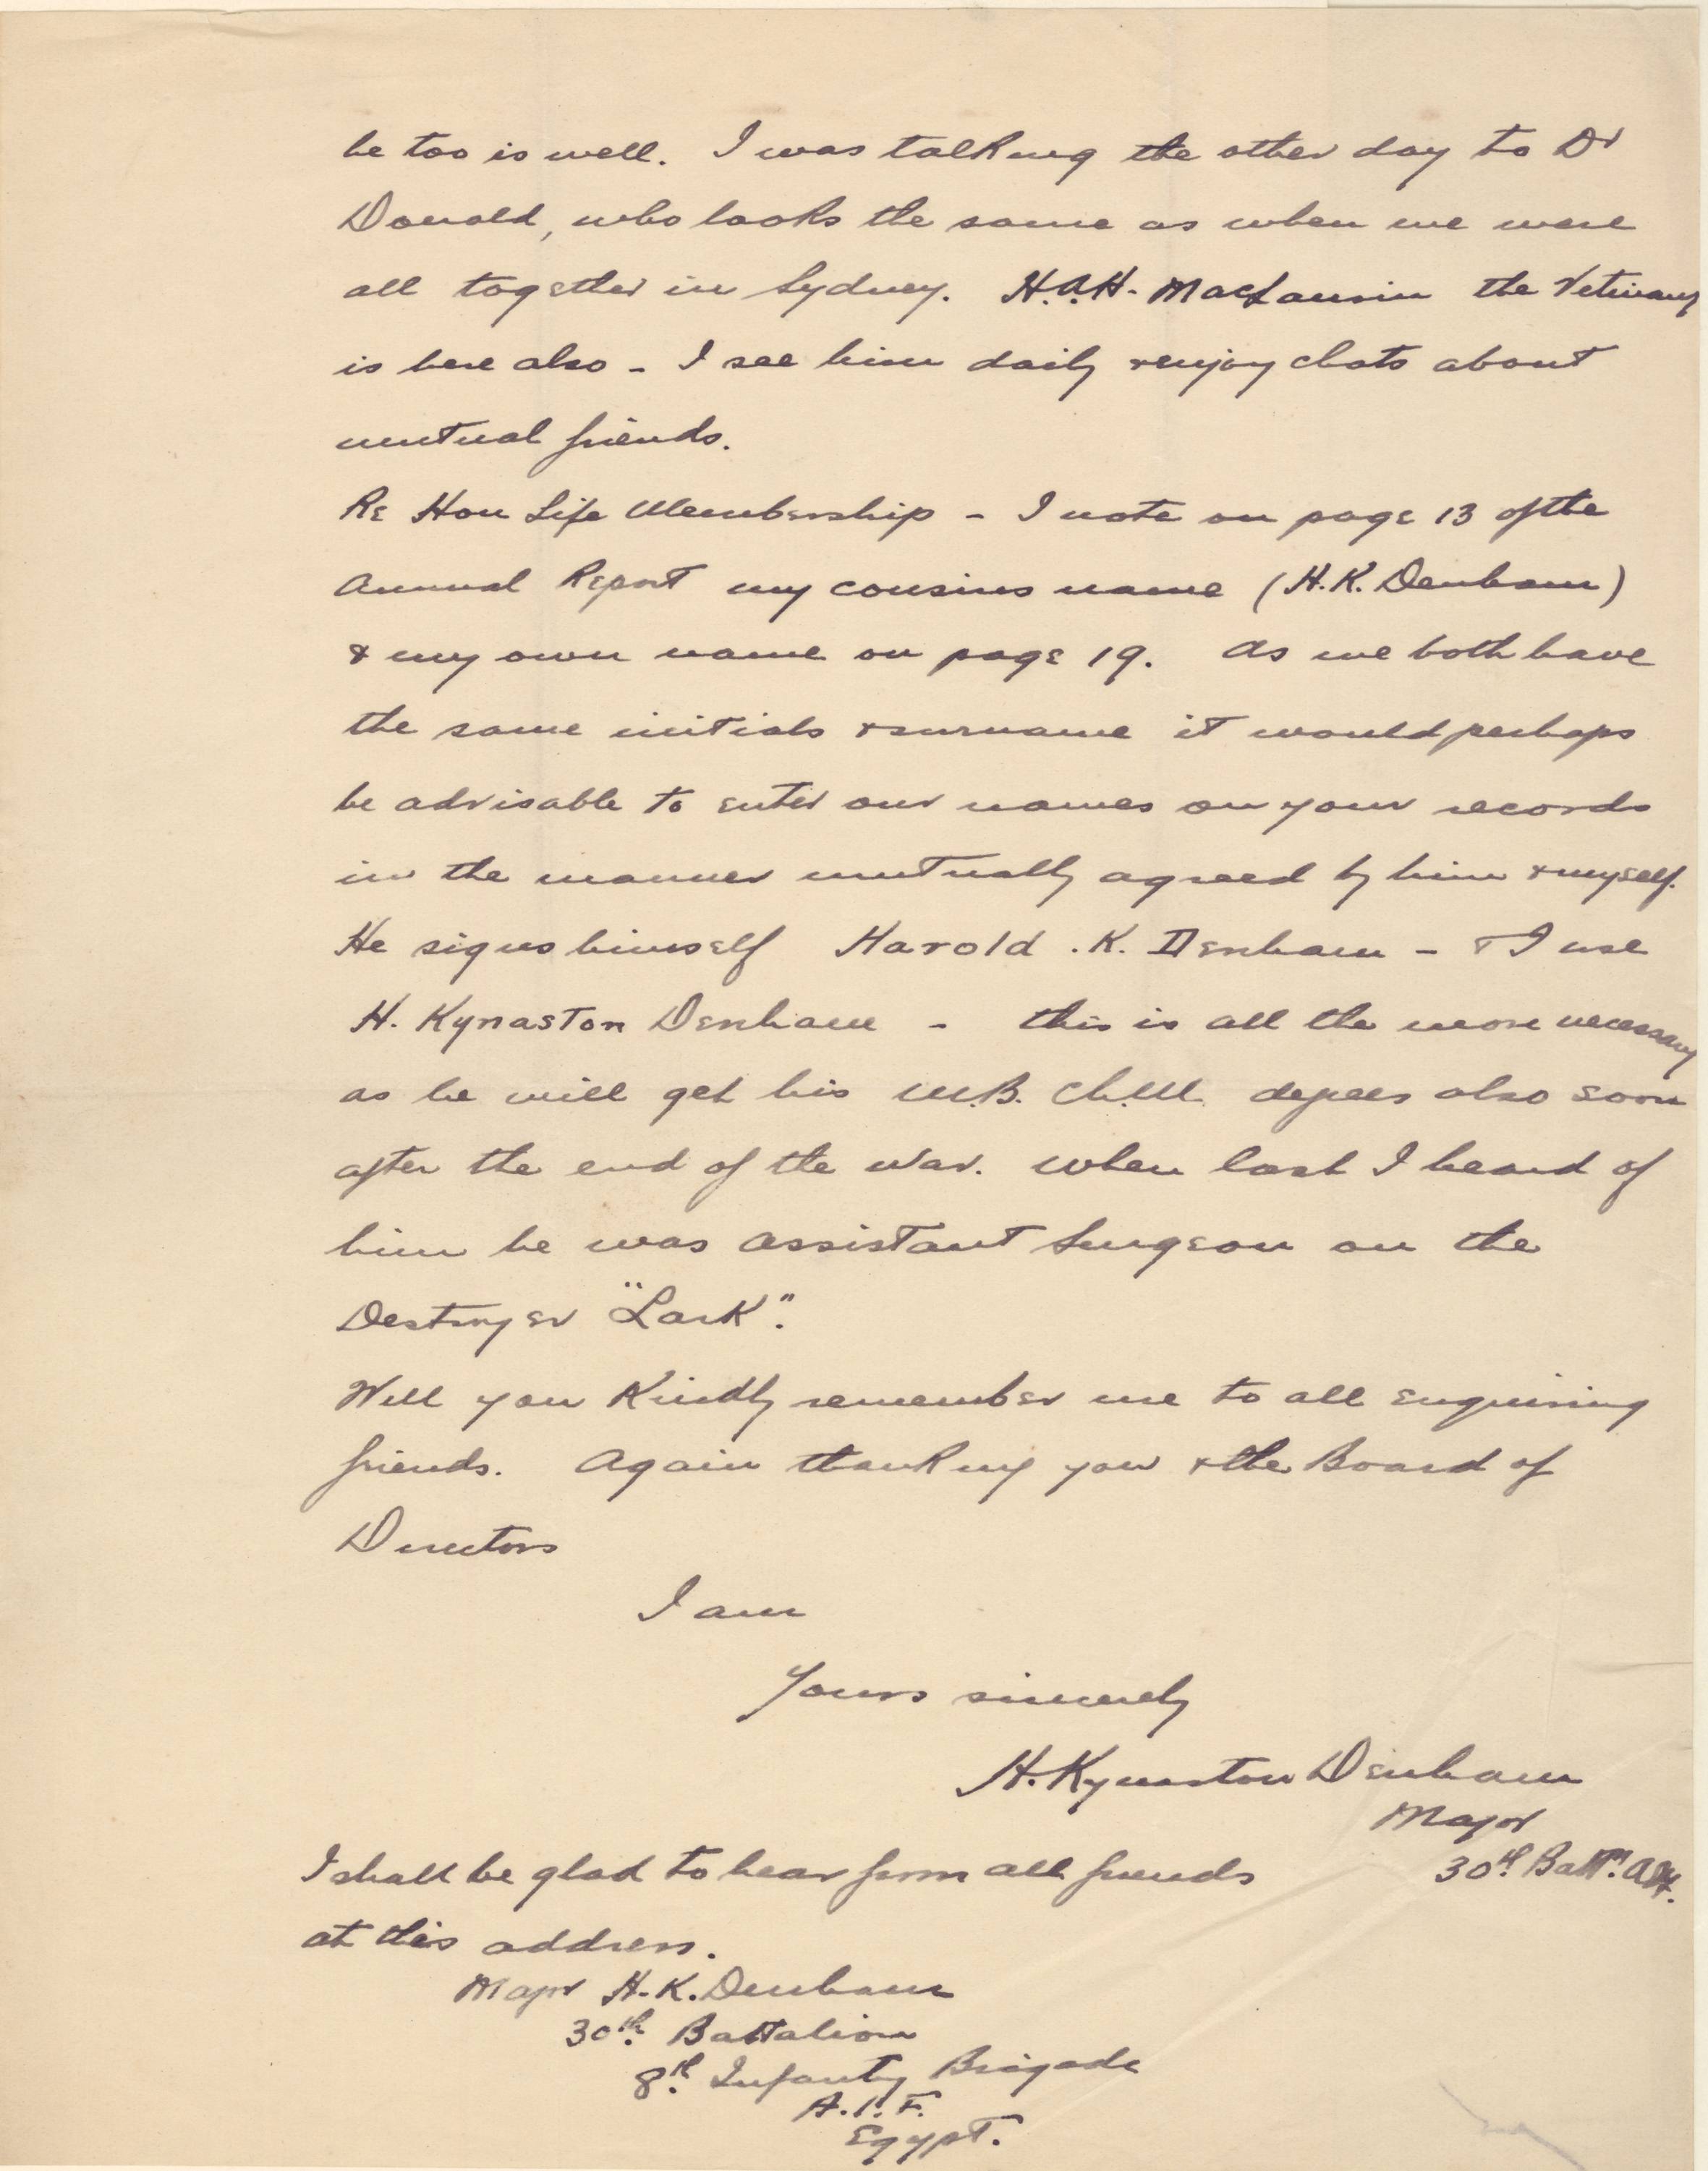 he too is well. I was talking the other day to Dr
Donald, who looks the same as when we were
all together in Sydney. H.A.H. MacLaurin the Vetinary
is here also - I see him daily & enjoy chats about
mutual friends.
Re Hon Life Membership - I note on page 13 of the
Annual Report my cousins name (H.K. Denham)
& my own name on page 19. As we both have
the same initials & surname it would perhaps
be advisable to enter our names on your records
in the manner mutually agreed by him & myself.
He signs himself Harold .K. Denham - & I use
H. Kynaston Denham - this is all the more necessary
as he will get his M.B. Ch.M. degrees also soon
after the end of the War. When last I heard of
him he was assistant Surgeon on the
Destroyer "Lark".
Will you Kindly remember me to all enquiring
friends. Again thanking you & the Board of
Directors
I am
Yours sincerely
H. Kynaston Denham
Major
30th Battn. AIF.
I shall be glad to hear from all friends
at this address.
Major H.K. Denham
30th. Battalion
8th. Infantry Brigade
A.I.F.
Egypt.